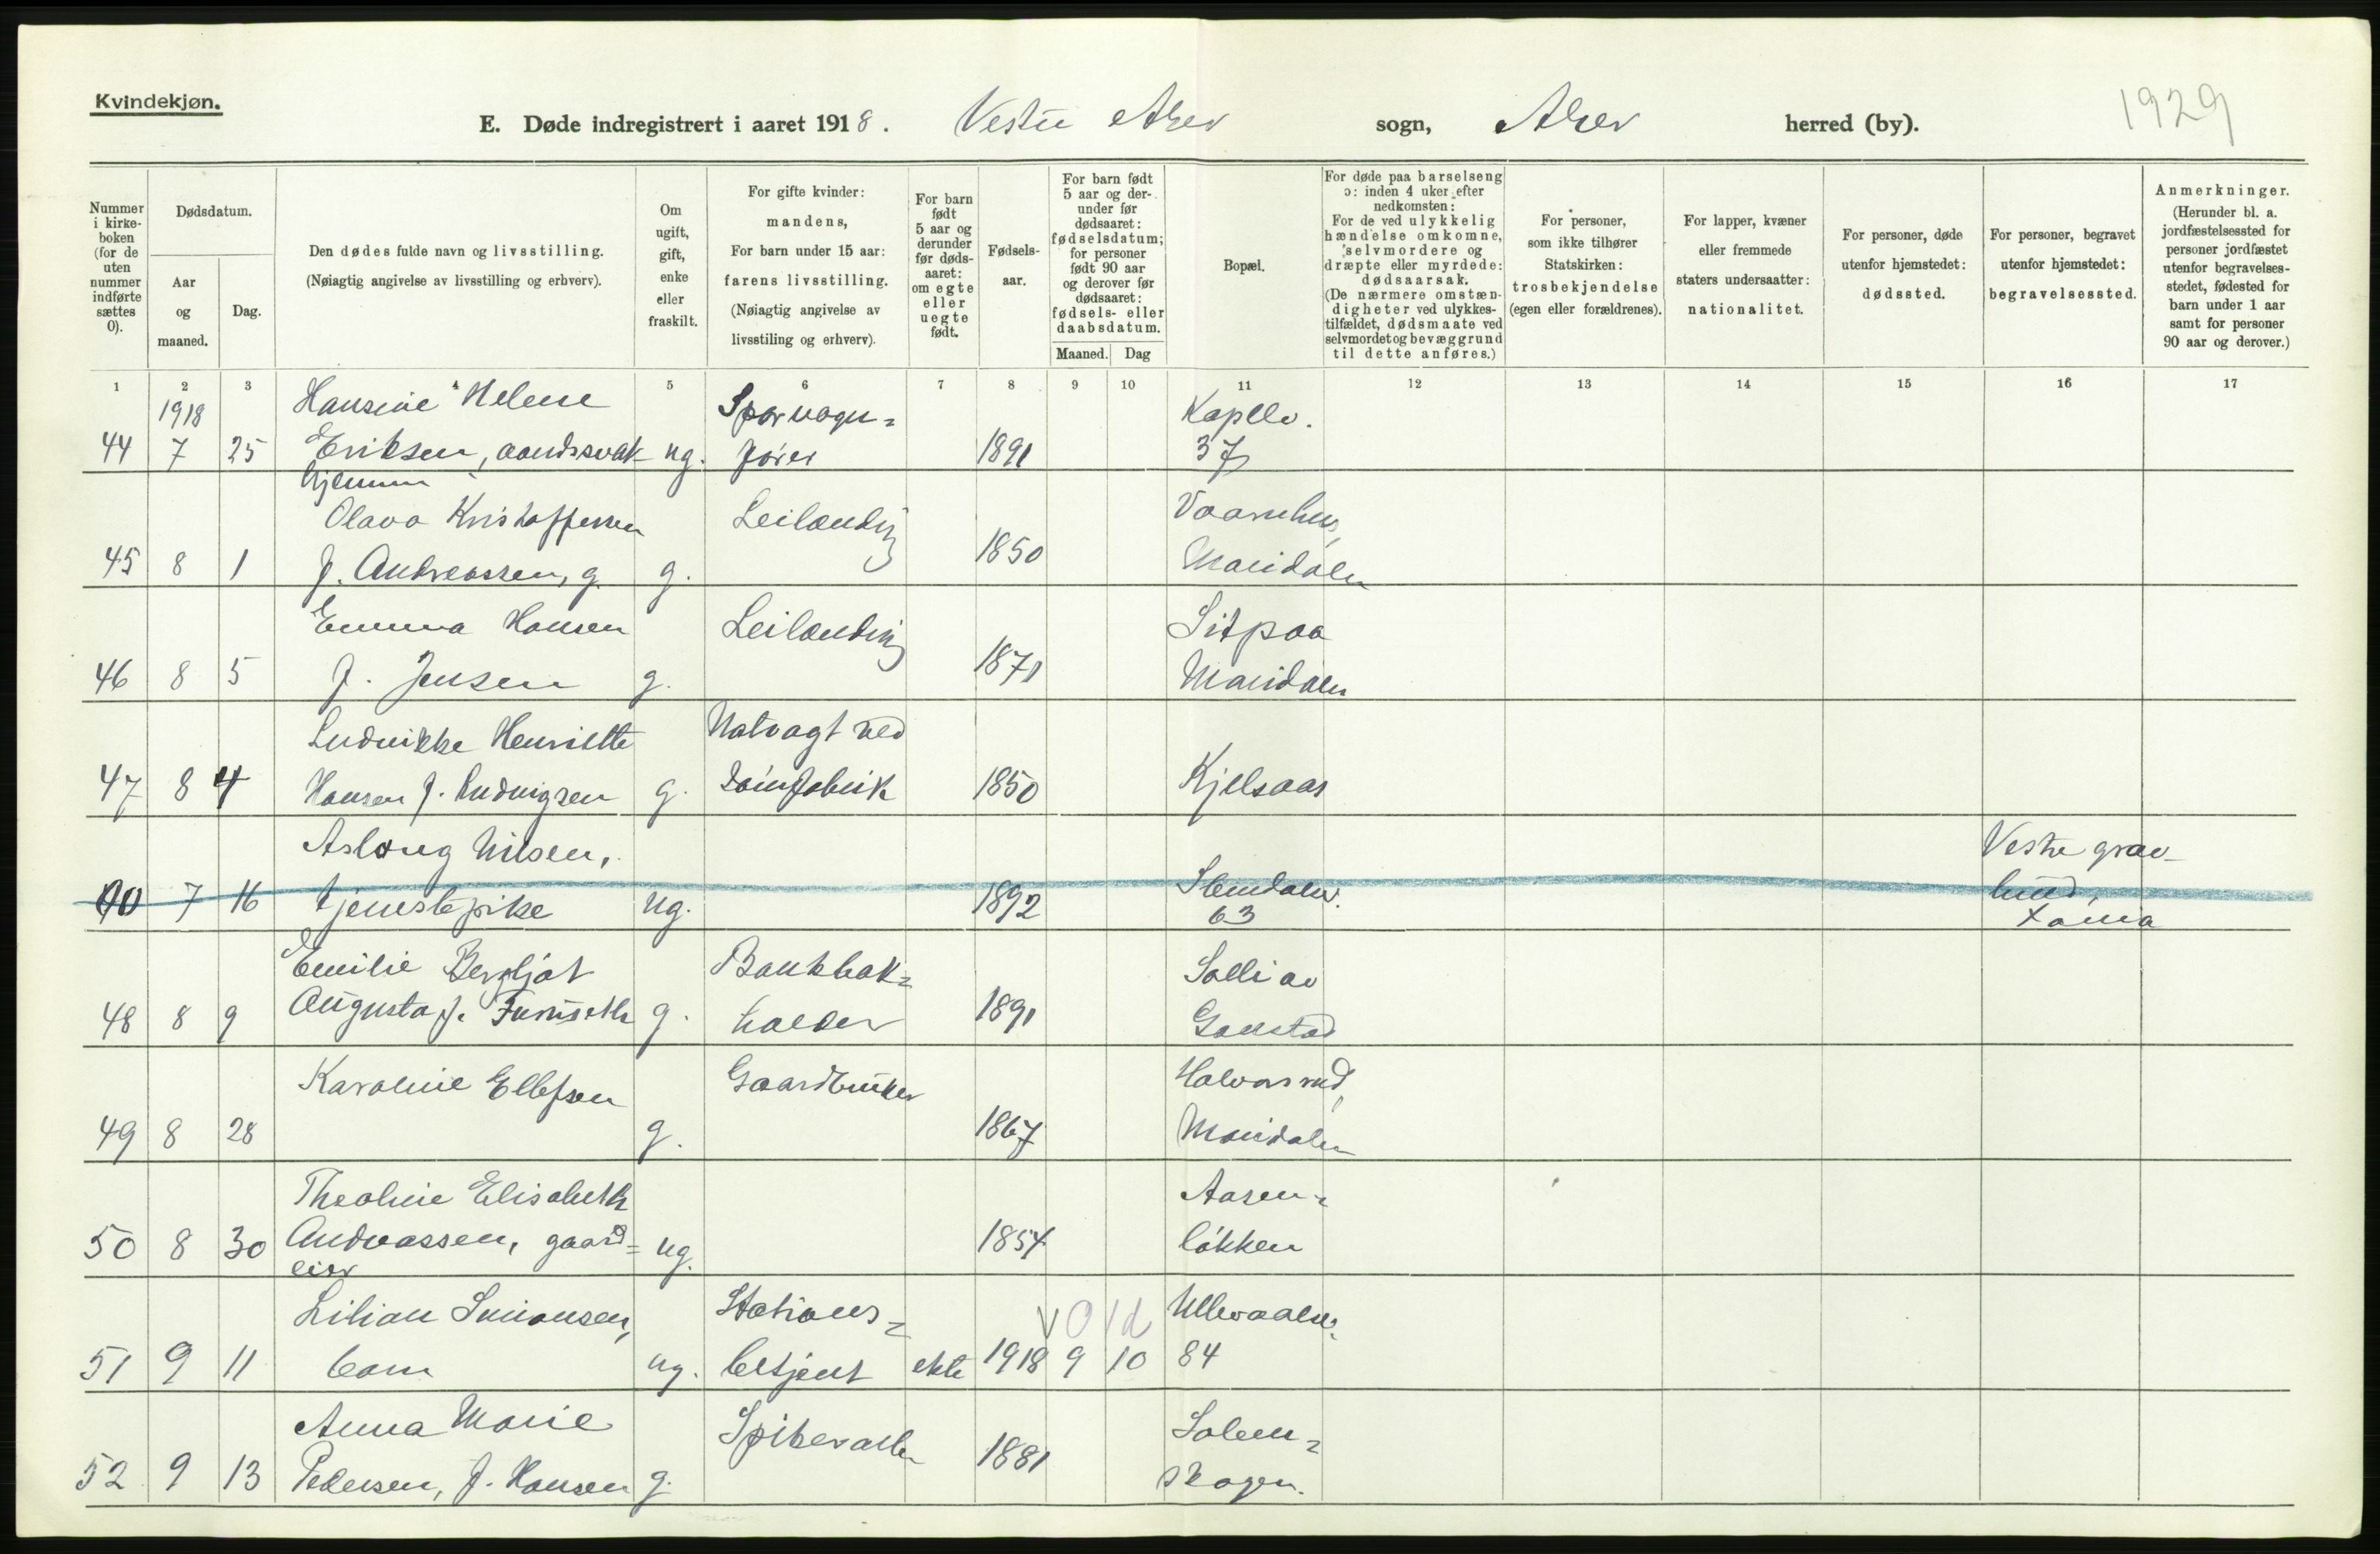 Kvindekjøn.
E. Døde indregistrert i aaret 1918. Vestre Aker sogn, Aker herred (by).
1929
Nummer i kirkeboken (for de uten nummer indførte sættes 0).
Dødsdatum.
Aar og maaned.
Dag.
Den dødes fulde navn og livsstilling.
(Nøiagtig angivelse av livsstilling og erhverv).
Om ugift, gift, enke eller fraskilt.
For gifte kvinder: mandens,
For barn under 15 aar: farens livsstilling.
(Nøiagtig angivelse av livsstiling og erhverv).
For barn født 5 aar og derunder før dødsaaret: om egte eller uegte født.
Fødselsaar.
For barn født 5 aar og derunder før dødsaaret: fødselsdatum; for personer født 90 aar og derover før dødsaaret: fødsels- eller daabsdatum.
Maaned. Dag
Bopæl.
For døde paa barselseng ɔ: inden 4 uker efter nedkomsten:
For de ved ulykkelig hændelse omkomne, selvmordere og dræpte eller myrdede: dødsaarsak.
(De nærmere omstændigheter ved ulykkestilfældet, dødsmaate ved selvmordet og bevæggrund til dette anføres.)
For personer, som ikke tilhører Statskirken: trosbekjendelse (egen eller forældrenes).
For lapper, kvæner eller fremmede staters undersaatter: nationalitet.
For personer, døde utenfor hjemstedet: dødssted.
For personer, begravet utenfor hjemstedet: begravelsessted.
Anmerkninger.
(Herunder bl. a. jordfæstelsessted for personer jordfæstet utenfor begravelsesstedet, fødested for barn under 1 aar samt for personer 90 aar og derover.)
1 2 3 4 5 6 7 8 9 10 11 12 13 14 15 16 17
1918 Hansine Helene Sporvogn= Kapellv.
44 7 25 Eriksen, aandssvak ug. fører 1891 37
hjemme
Olava Kristoffersen Leilænding Vaarnhus,
45 8 1 f. Andreassen, g. g. 1850 Maridalen
Emma Hansen Leilænding Sitpaa
46 8 5 f. Jensen g. 1871 Maridalen
Ludvikke Henriette Natvagt ved
47 8 4 Hansen f. Ludvigsen g. 1850 Kjelsaas
Aslaug Nilsen, Vestre grav-
00 7 16 tjenestepike ug. 1892 63 lund,
Xania
Emilie Bergljot Bankbok= Solli av
48 8 9 Augusta f. Furuseth g. holder 1891 Gaustad
Karoline Ellefsen Gaardbruker Halvorsrud,
49 8 28 g. 1867 Maridalen
Theoline Elisabeth Aasen=
50 8 30 Andreassen, gaard= ug. 1854 løkken
eier
Lilian Simonsen, Stations= v 0 1d Ullevaalsv.
51 9 11 barn ug. betjent ekte 1918 9 10 84
Anna Marie Solem=
52 9 13 Pedersen, f. Hansen g. 1881 skogen.